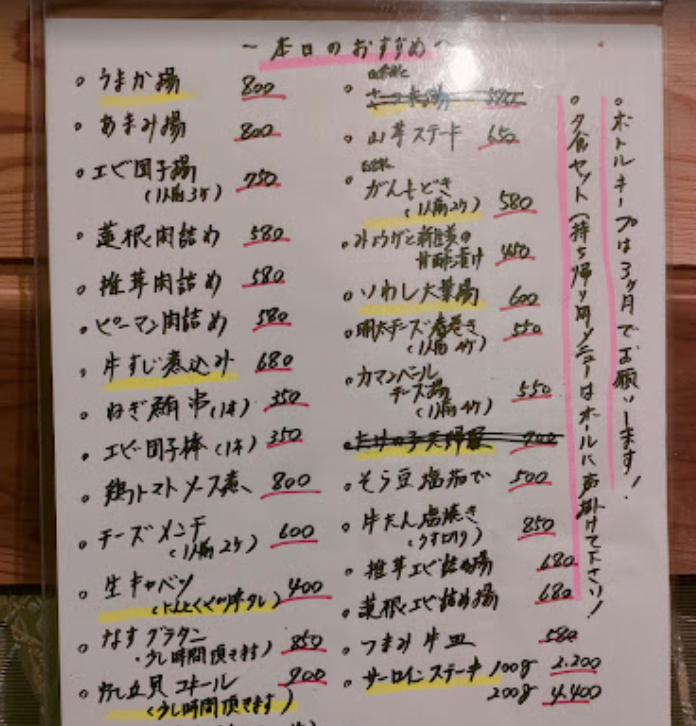 ～本日のおすすめ～
・うまか揚 800
・あまみ揚 800
・エビ団子揚 750
(1人前3ケ)
・蓮根肉詰め 580
・椎茸肉詰め 580
・ピーマン肉詰め 580
・牛すじ煮込み 680
・ねぎ鮪串(1本) 350
・エビ団子棒(1本) 350
・鶏トマトソース煮 800
・チーズメンチ 600
(1人前2ケ)
・生キャベツ 400
(にんにくみそタレ)
・なすグラタン 850
・少し時間頂きます)
・帆立貝コキール 900
(少し時間頂きます)
自家製
・山芋ステーキ 650
自家製
・がんもどき 580
(1人前2ケ)
・みょうがと新生姜の
甘酢漬け 450
・いわし大葉揚 600
・明太チーズ春巻き 550
(1人前4ケ)
・カマンベール
チーズ揚 550
(1人前4ケ)
・たけの子天婦羅 700
・そら豆塩茹で 500
・牛たん塩焼き 850
(うす切り)
・椎茸エビ詰め揚 680
・蓮根エビ詰め揚 680
・つまみ牛皿 580
・サーロインステーキ 100g 2.200
200g 4.400
・ボトルキープは3ヶ月でお願いします!
・夕食セット(持ち帰り用メニューはホールに声掛けて下さい!